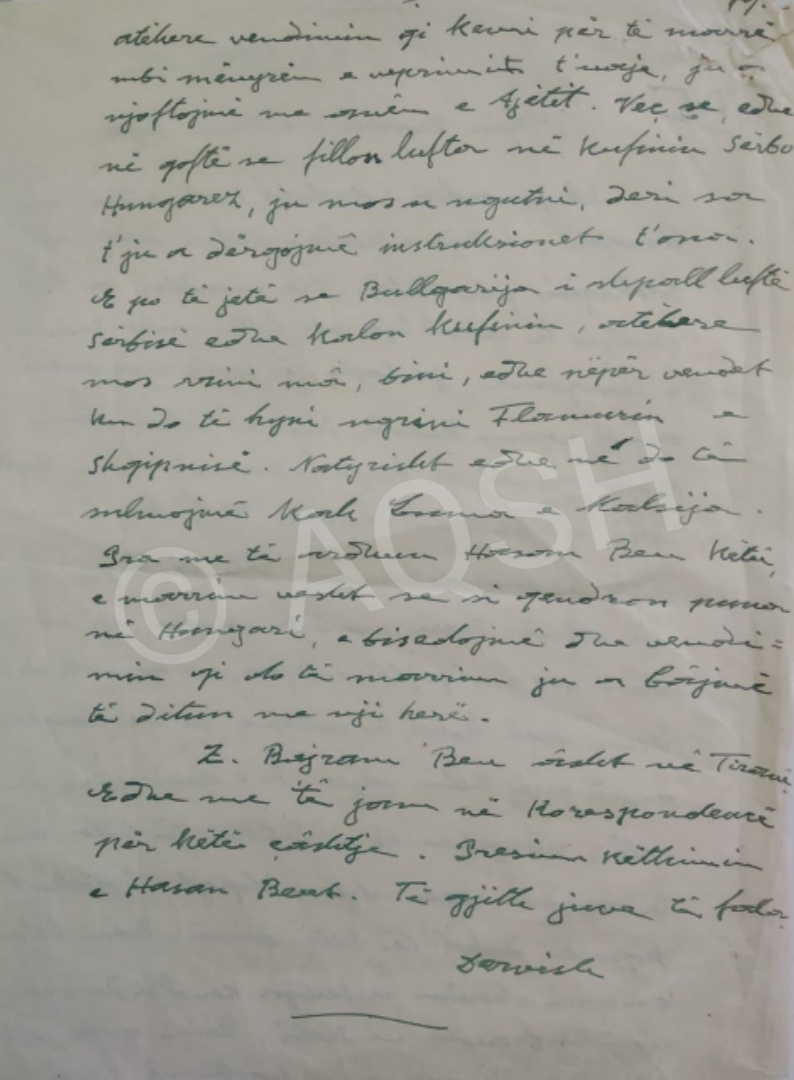 atëhere vendimin qi kemi për të marrë
mbi mënyrën e veprimit t'uaja, ju a
njoftojmë me anën e Agétit. Veç se, edhe
në qoftë se fillon luftor në Kufinin Sërbo
Hungarez, ju mos u ngutni, deri sa
t'ju a dërgojmë instruksionet t'ona.
E po të jetë se Bullgarija i shpall luftë
Sërbisë edhe kalon kufinin, atëhere
mos rrini më, bini, edhe nëpër vendet
ku do të hyni ngrini Flamurin e
Shqipnisë. Natyrisht edhe në do të
mbuojmë
Pra me të ardhun Hasan Beu këtu,
e marrim vesht se si qendron puna
në Hungari, e bisedojmë dhe vendi=
min qi do të marrim ju a bëjmë
të ditun me nji herë.
Z. Bejram Beu është në Tiranë.
Edhe me të jemi në Korespondencë
për këtë çështje. Presim këthimin
e Hasan Beut. Të gjith juve të fala
Dervish
© AQSH